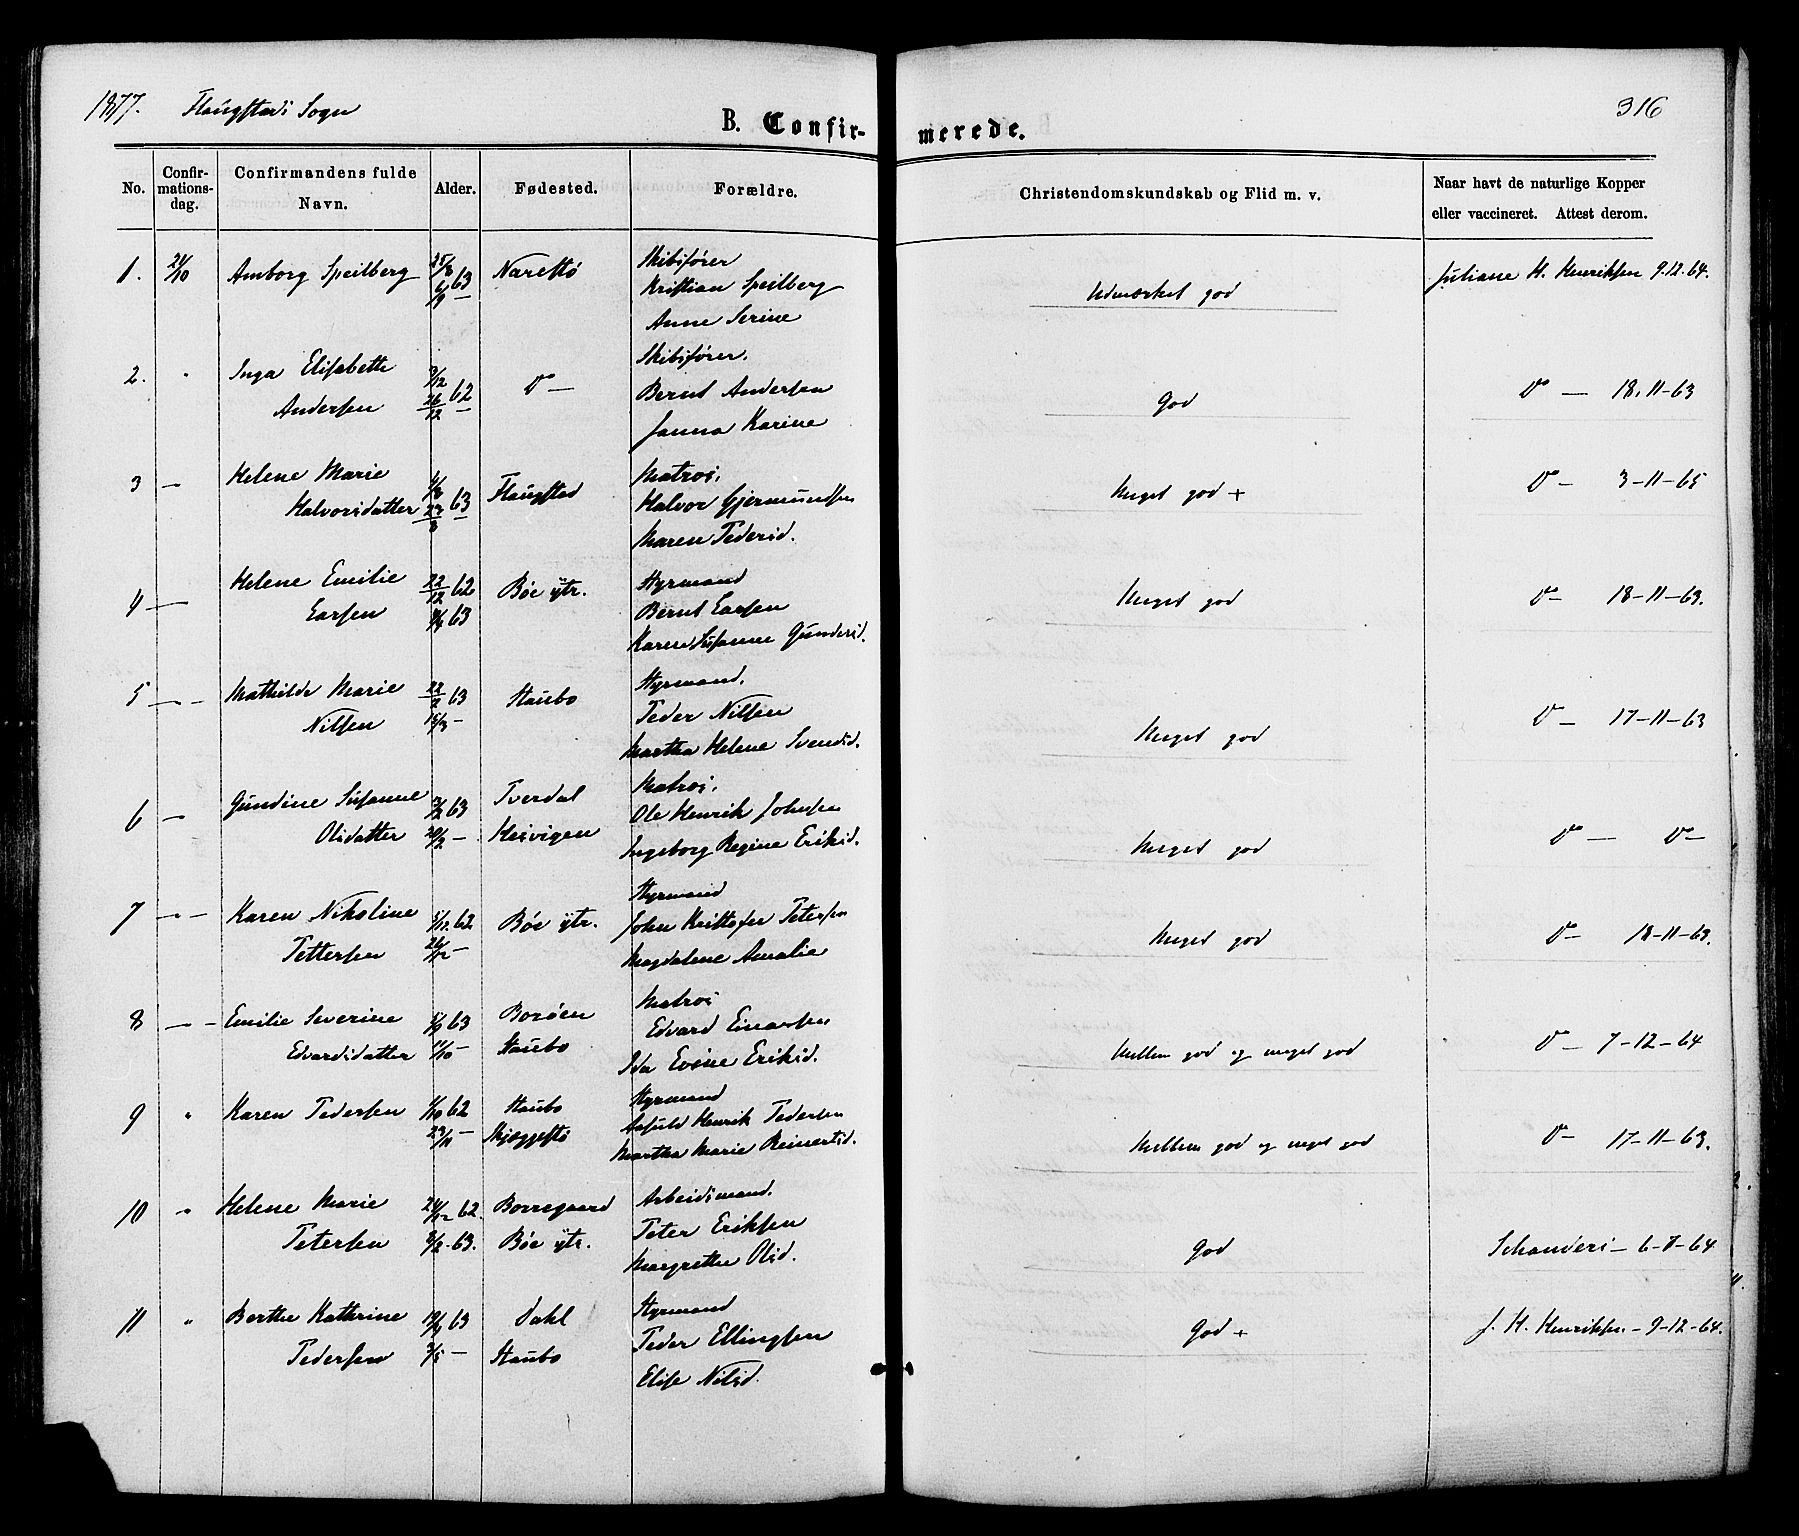 1877. Flaugstads Sogn
316
B. Confirmerede.
No. Confirmationsdag. Confirmandens fulde Navn. Alder. Fødested. Forældre. Christendomskundskab og Flid m. v. Naar havt de naturlige Kopper eller vaccineret. Attest derom.
1. 21/10 Amborg Speilberg 25/8 63 Narestø Skibsfører
Kristian Speilberg
Anne Serine
Udmærket god
Juliane H. Henriksen 9.12.64.
2. " Inga Elisabeth 62 D° — Skibsfører.
Andersen 26/12 — Bernt Andersen
Janna Karine
God
D° — 18.11-63
3 — Helene Marie 63 Flaugstad Matros,
Halvorsdatter 23/8 — Halvor Gjermundsen
Maren Pedersd.
Meget god +
D° — 3-11-65
4 — Helene Emilie 22/12 62 Bøe ytr. Styrmand
Larsen 63 Bernt Larsen
Karen Susanne Gundersd.
Meget god
D° — 18-11-63.
5 — " — Mathilde Marie 22/2 63 Staubø Styrmand.
Nilsen 15/3 — Peder Nilsen
Martha Helene Svendsd.
Meget god
D° — 17-11-63
6 — Gundine Susanne 63 Tverdal Matros,
Olsdatter 20/2 — Hesvigen Ole Henrik Johnsen
Ingeborg Regine Eriksd.
Meget god
D° — D° —
7 — " — Karen Nikoline 5/11 62 Bøe ytr. Styrmand
Pettersen 26/12 — John Kristofer Petersen
Magdalene Amalie
Meget god
D° — 18-11-63.
8 — " — Emilie Severine 63 Borøen Matros
Edvardsdatter 11/10 — Staubø Edvard Einarsen
Ida Evine Eriksd.
Mellem god og meget god
D° — 7-12-64
9 " Karen Pedersen 62 Staubø Styrmand
23/11 — Skjeggestø Henrik Pedersen
Martha Marie Reinertsd.
Mellem god og meget god
D° — 17-11-63.
10 " Helene Marie 24/12 62. Borregaard Arbeidsmand.
Petersen 8/2. 63. Bøe ytr. Peter Eriksen
Margrethe Olsd.
God
Schanders — 6-7-64
11 " Berthe Kathrine 63 Dahl Styrmand
Pedersen 3/5 — Staubø Peder Ellingsen
Elise Nilsd.
God +
J. H. Henriksen — 9-12-64.